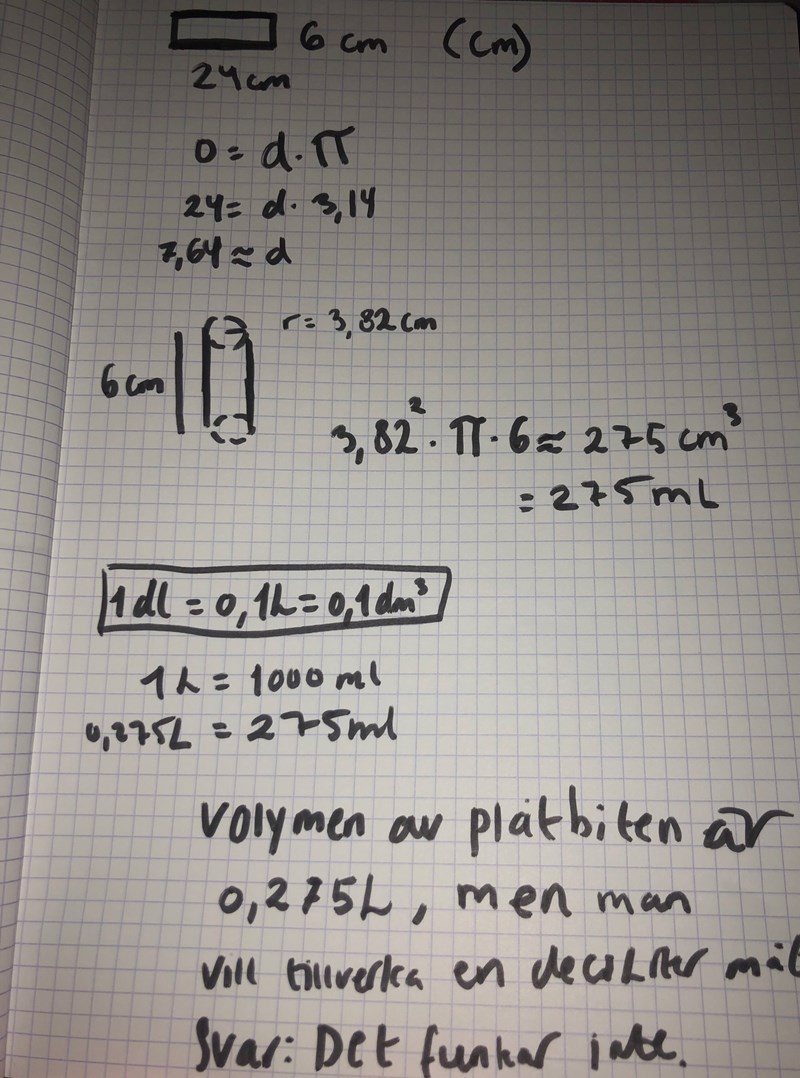 6 cm (cm)
24cm
O = d · π
24 = d · 3,14
7,64 ≈ d
r = 3,82 cm
6 cm
3,82² · π · 6 ≈ 275 cm³
= 275 mL
1 dl = 0,1L = 0,1 dm³
1 L = 1000 ml
0,275L = 275ml
Volymen av plåtbiten är
0,275L, men man
vill tillverka en deciliter mål
Svar: Det funkar inte.